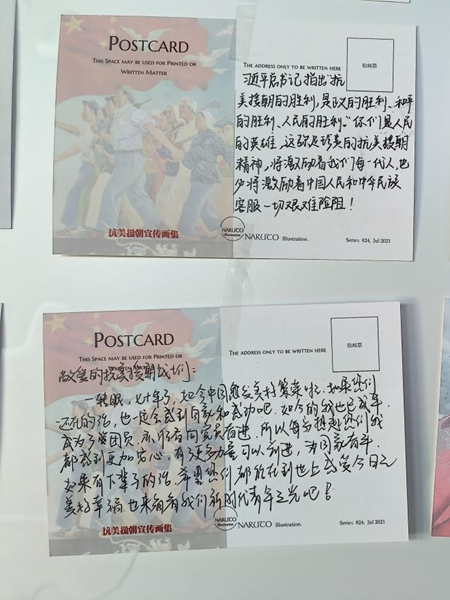 POSTCARD
THIS SPACE MAY BE USED FOR PRINTED OR
WRITTEN MATTER
THE ADDRESS ONLY TO BE WRITTEN HERE
贴邮票
习近平总书记指出“抗
美援朝的胜利,是正义的胜利、和平
的胜利、人民的胜利。”你们是人民
的英雄,这种伟美的抗美援朝
精神,将激励着我们每一代人,也
必将激励着中国人民和中华民族
克服一切艰难险阻!
抗美援朝宣传画集
NARUTO Illustration.
Series 824, Jul 2021
POSTCARD
THIS SPACE MAY BE USED FOR PRINTED OR
THE ADDRESS ONLY TO BE WRITTEN HERE
贴邮票
敬爱的抗美援朝战士们:
一转眼,七十年了,如今中国愈发美好繁荣啦。如果您们
还在的话,也一定会感到自豪和感动吧。如今的我也已成年
成为了共青团员,亦怀着向党奋进。所以每当想起您们我
都感到更加安心,有更多动力可以前进,为国家有年
如果有下辈子的话,希望您们都能在到世上感受今日之
美好幸福,也来看看我们新时代青年之光吧!
抗美援朝宣传画集
NARUTO Illustration.
Series 824, Jul 2021